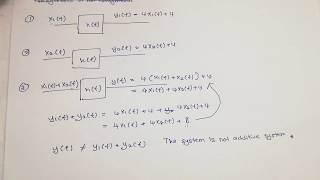 ① x₁(t) h(t) y₁(t) = 4x₁(t)+4
② x₂(t) h(t) y₂(t) = 4x₂(t)+4
③ x₁(t)+x₂(t) h(t) y(t) = 4(x₁(t)+x₂(t))+4
= 4x₁(t)+4x₂(t)+4
y₁(t)+y₂(t) = 4x₁(t)+4+ 4x₂(t)+4
= 4x₁(t)+4x₂(t)+8
y(t) ≠ y₁(t)+y₂(t) The system is not additive system